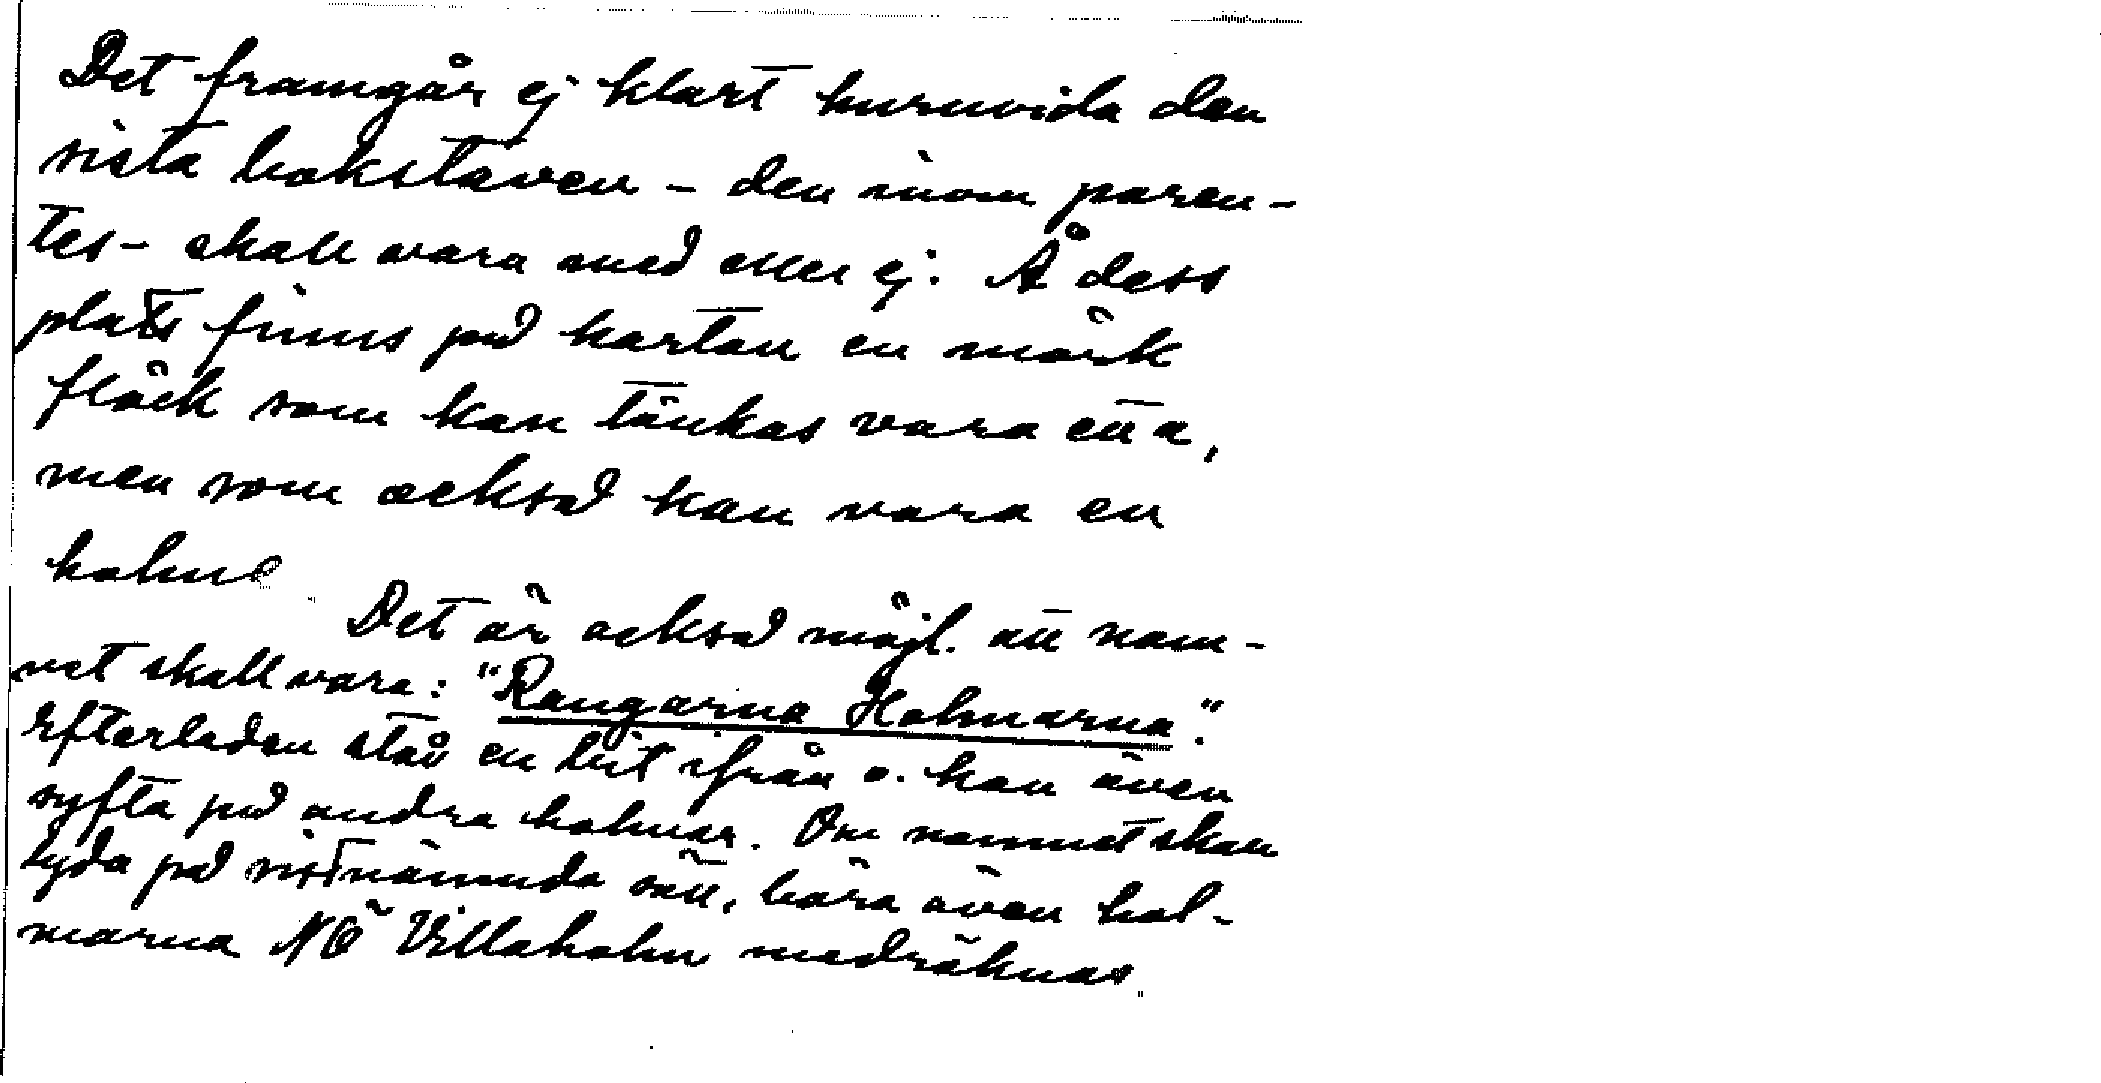 Det framgår ej klart huruvida den
sista bokstaven - den inom paren-
tes - skall vara med eller ej. Å dess
plats finns på kartan en mörk
fläck som kan tänkas vara ett a,
men som också kan vara en
holme
Det är också möjl. att nam-
net skall vara: "Rangarna Holmarna".
Efterleden står en bit ifrån o. kan även
syfta på andra holmar. Om namnet skall
lyda på sistnämnda sätt, böra även hol-
marna NÖ Villaholm medräknas.